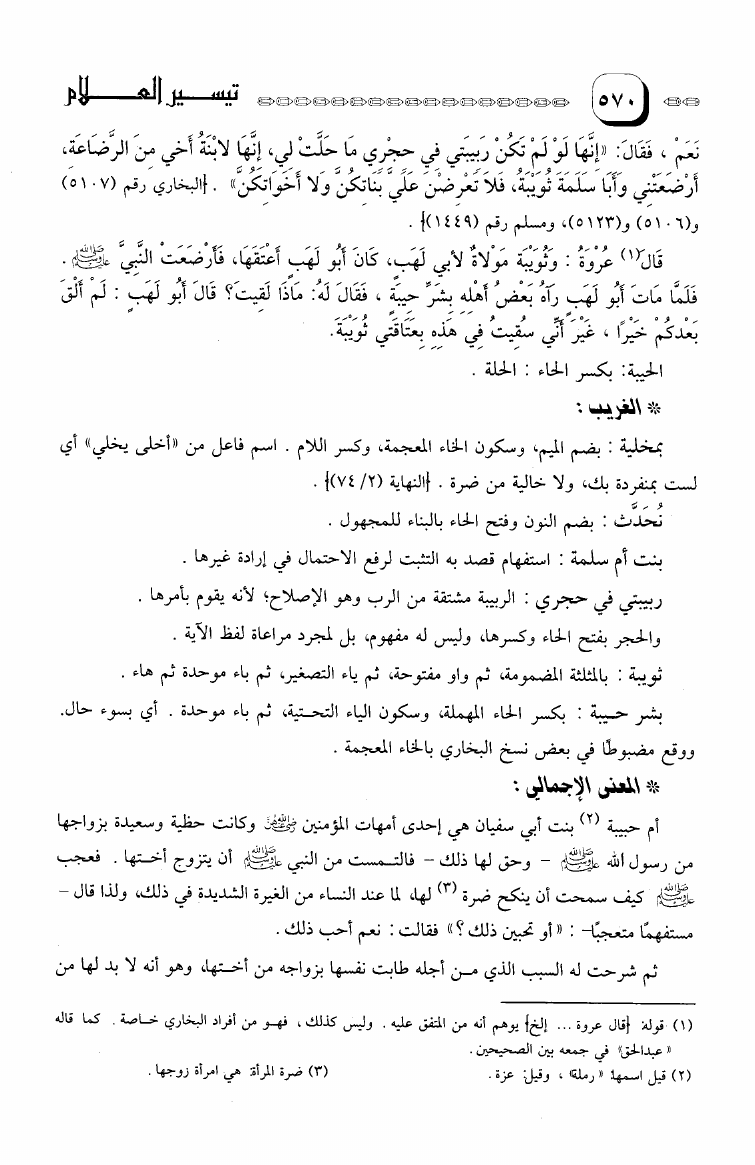 ٥٧٠ تيسير العلام
نَعَمْ ، فَقَالَ: «إِنَّهَا لَوْ لَمْ تَكُنْ رَبِيبَتِي في حجْرِي مَا حَلَّتْ لي، إنَّهَا لابْنَةُ أخي منَ الرَّضَاعَة،
أرْضَعَتْني وَأبَا سَلَمَةَ ثُوَيْبَةُ، فَلاَ تَعْرضْنَ عَلَيَّ بَنَاتكُنَّ وَلا أخَوَاتكُنَّ» . {البخاري رقم (٥١٠٧)
و(٥١٠٦) و(٥١٢٣)، ومسلم رقم (١٤٤٩)} .
قَالَ(١) عُرْوَةُ : وَثُوَيْبَة مَوْلاَةٌ لأبي لَهَب، كَانَ أبُو لَهَب أعْتَقَهَا، فَأرْضَعَت النَّبيَّ ﷺ .
فَلَمَّا مَاتَ أبُو لَهَب رَآهُ بَعْضُ أهْله بشَرِّ حيبَة ، فَقَالَ لَهُ: مَاذَا لَقيتَ؟ قَالَ أبُو لَهَب : لَمْ ألْقَ
بَعْدكُمْ خَيْرًا ، غَيْرَ أنِّي سُقيتُ في هَذه بعَتَاقَتي ثُوَيْبَةَ.
الحيبة: بكسر الحاء : الحلة .
* الغريب :
بمخلية : بضم الميم، وسكون الخاء المعجمة، وكسر اللام . اسم فاعل من «أخلى يخلي» أي
لست بمنفردة بك، ولا خالية من ضرة . {النهاية (٢/ ٧٤)} .
نُحَدَّث : بضم النون وفتح الحاء بالبناء للمجهول .
بنت أم سلمة : استفهام قصد به التثبت لرفع الاحتمال في إرادة غيرها .
ربيبتي في حجري : الربيبة مشتقة من الرب وهو الإصلاح؛ لأنه يقوم بأمرها .
والحجر بفتح الحاء وكسرها، وليس له مفهوم، بل لمجرد مراعاة لفظ الآية .
ثويبة : بالمثلثة المضمومة، ثم واو مفتوحة، ثم ياء التصغير، ثم باء موحدة ثم هاء .
بشر حيبة : بكسر الحاء المهملة، وسكون الياء التحتية، ثم باء موحدة . أي بسوء حال.
ووقع مضبوطًا في بعض نسخ البخاري بالخاء المعجمة .
* المعنى الإجمالي :
أم حبيبة (٢) بنت أبي سفيان هي إحدى أمهات المؤمنين وكانت حظية وسعيدة بزواجها
من رسول الله ﷺ – وحق لها ذلك – فالتمست من النبي ﷺ أن يتزوج أختها . فعجب
ﷺ كيف سمحت أن ينكح ضرة (٣) لها، لما عند النساء من الغيرة الشديدة في ذلك، ولذا قال –
مستفهمًا متعجبًا– : «أو تحبين ذلك ؟» فقالت : نعم أحب ذلك .
ثم شرحت له السبب الذي من أجله طابت نفسها بزواجه من أختها، وهو أنه لا بد لها من
(١) قوله: {قال عروة ... إلخ} يوهم أنه من المتفق عليه . وليس كذلك ، فهو من أفراد البخاري خاصة . كما قاله
«عبدالحق» في جمعه بين الصحيحين .
(٢) قيل اسمها: «رملة» ، وقيل: عزة . (٣) ضرة المرأة: هي امرأة زوجها .